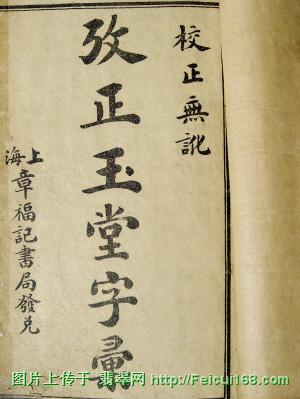 校正無訛
攷正玉堂字彙
上海章福記書局發兌
图片上传于 翡翠网 http://Feicui168.com